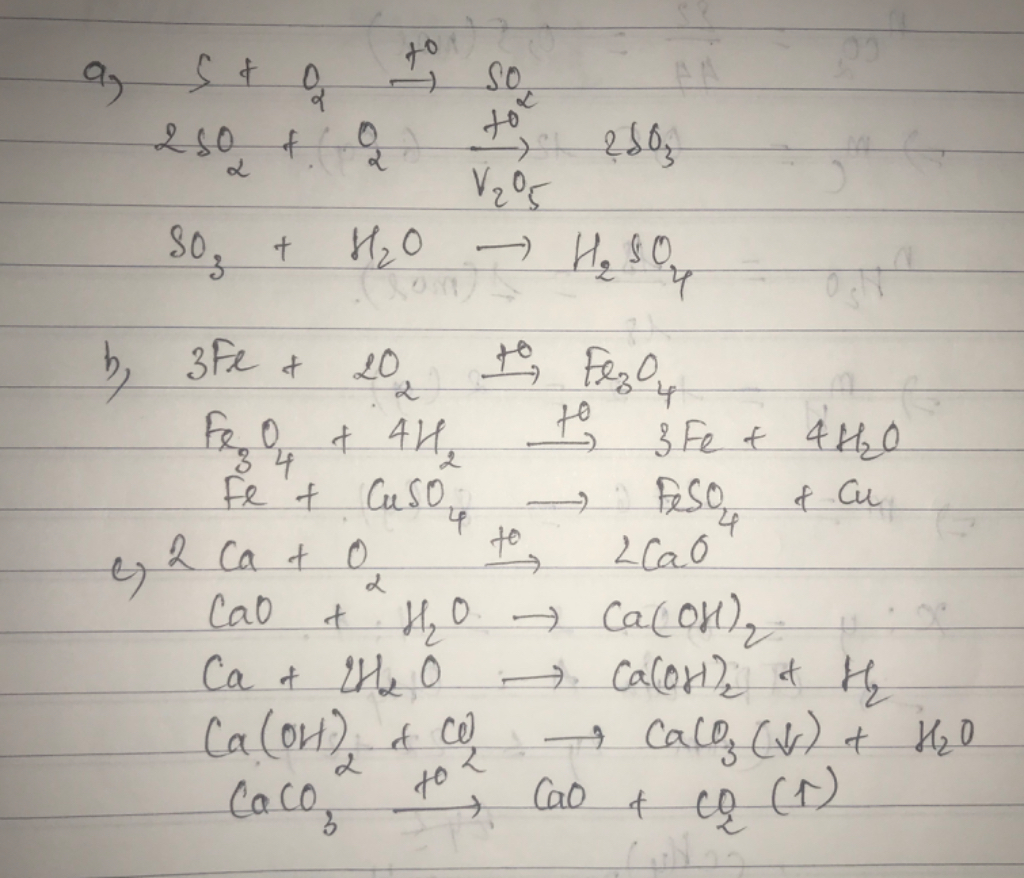 a, S + O₂ →(t⁰) SO₂
2SO₂ + O₂ →(t⁰, V₂O₅) 2SO₃
SO₃ + H₂O → H₂SO₄
b, 3Fe + 2O₂ →(t⁰) Fe₃O₄
Fe₃O₄ + 4H₂ →(t⁰) 3Fe + 4H₂O
Fe + CuSO₄ → FeSO₄ + Cu
c, 2Ca + O₂ →(t⁰) 2CaO
CaO + H₂O → Ca(OH)₂
Ca + 2H₂O → Ca(OH)₂ + H₂
Ca(OH)₂ + CO₂ → CaCO₃(↓) + H₂O
CaCO₃ →(t⁰) CaO + CO₂ (↑)